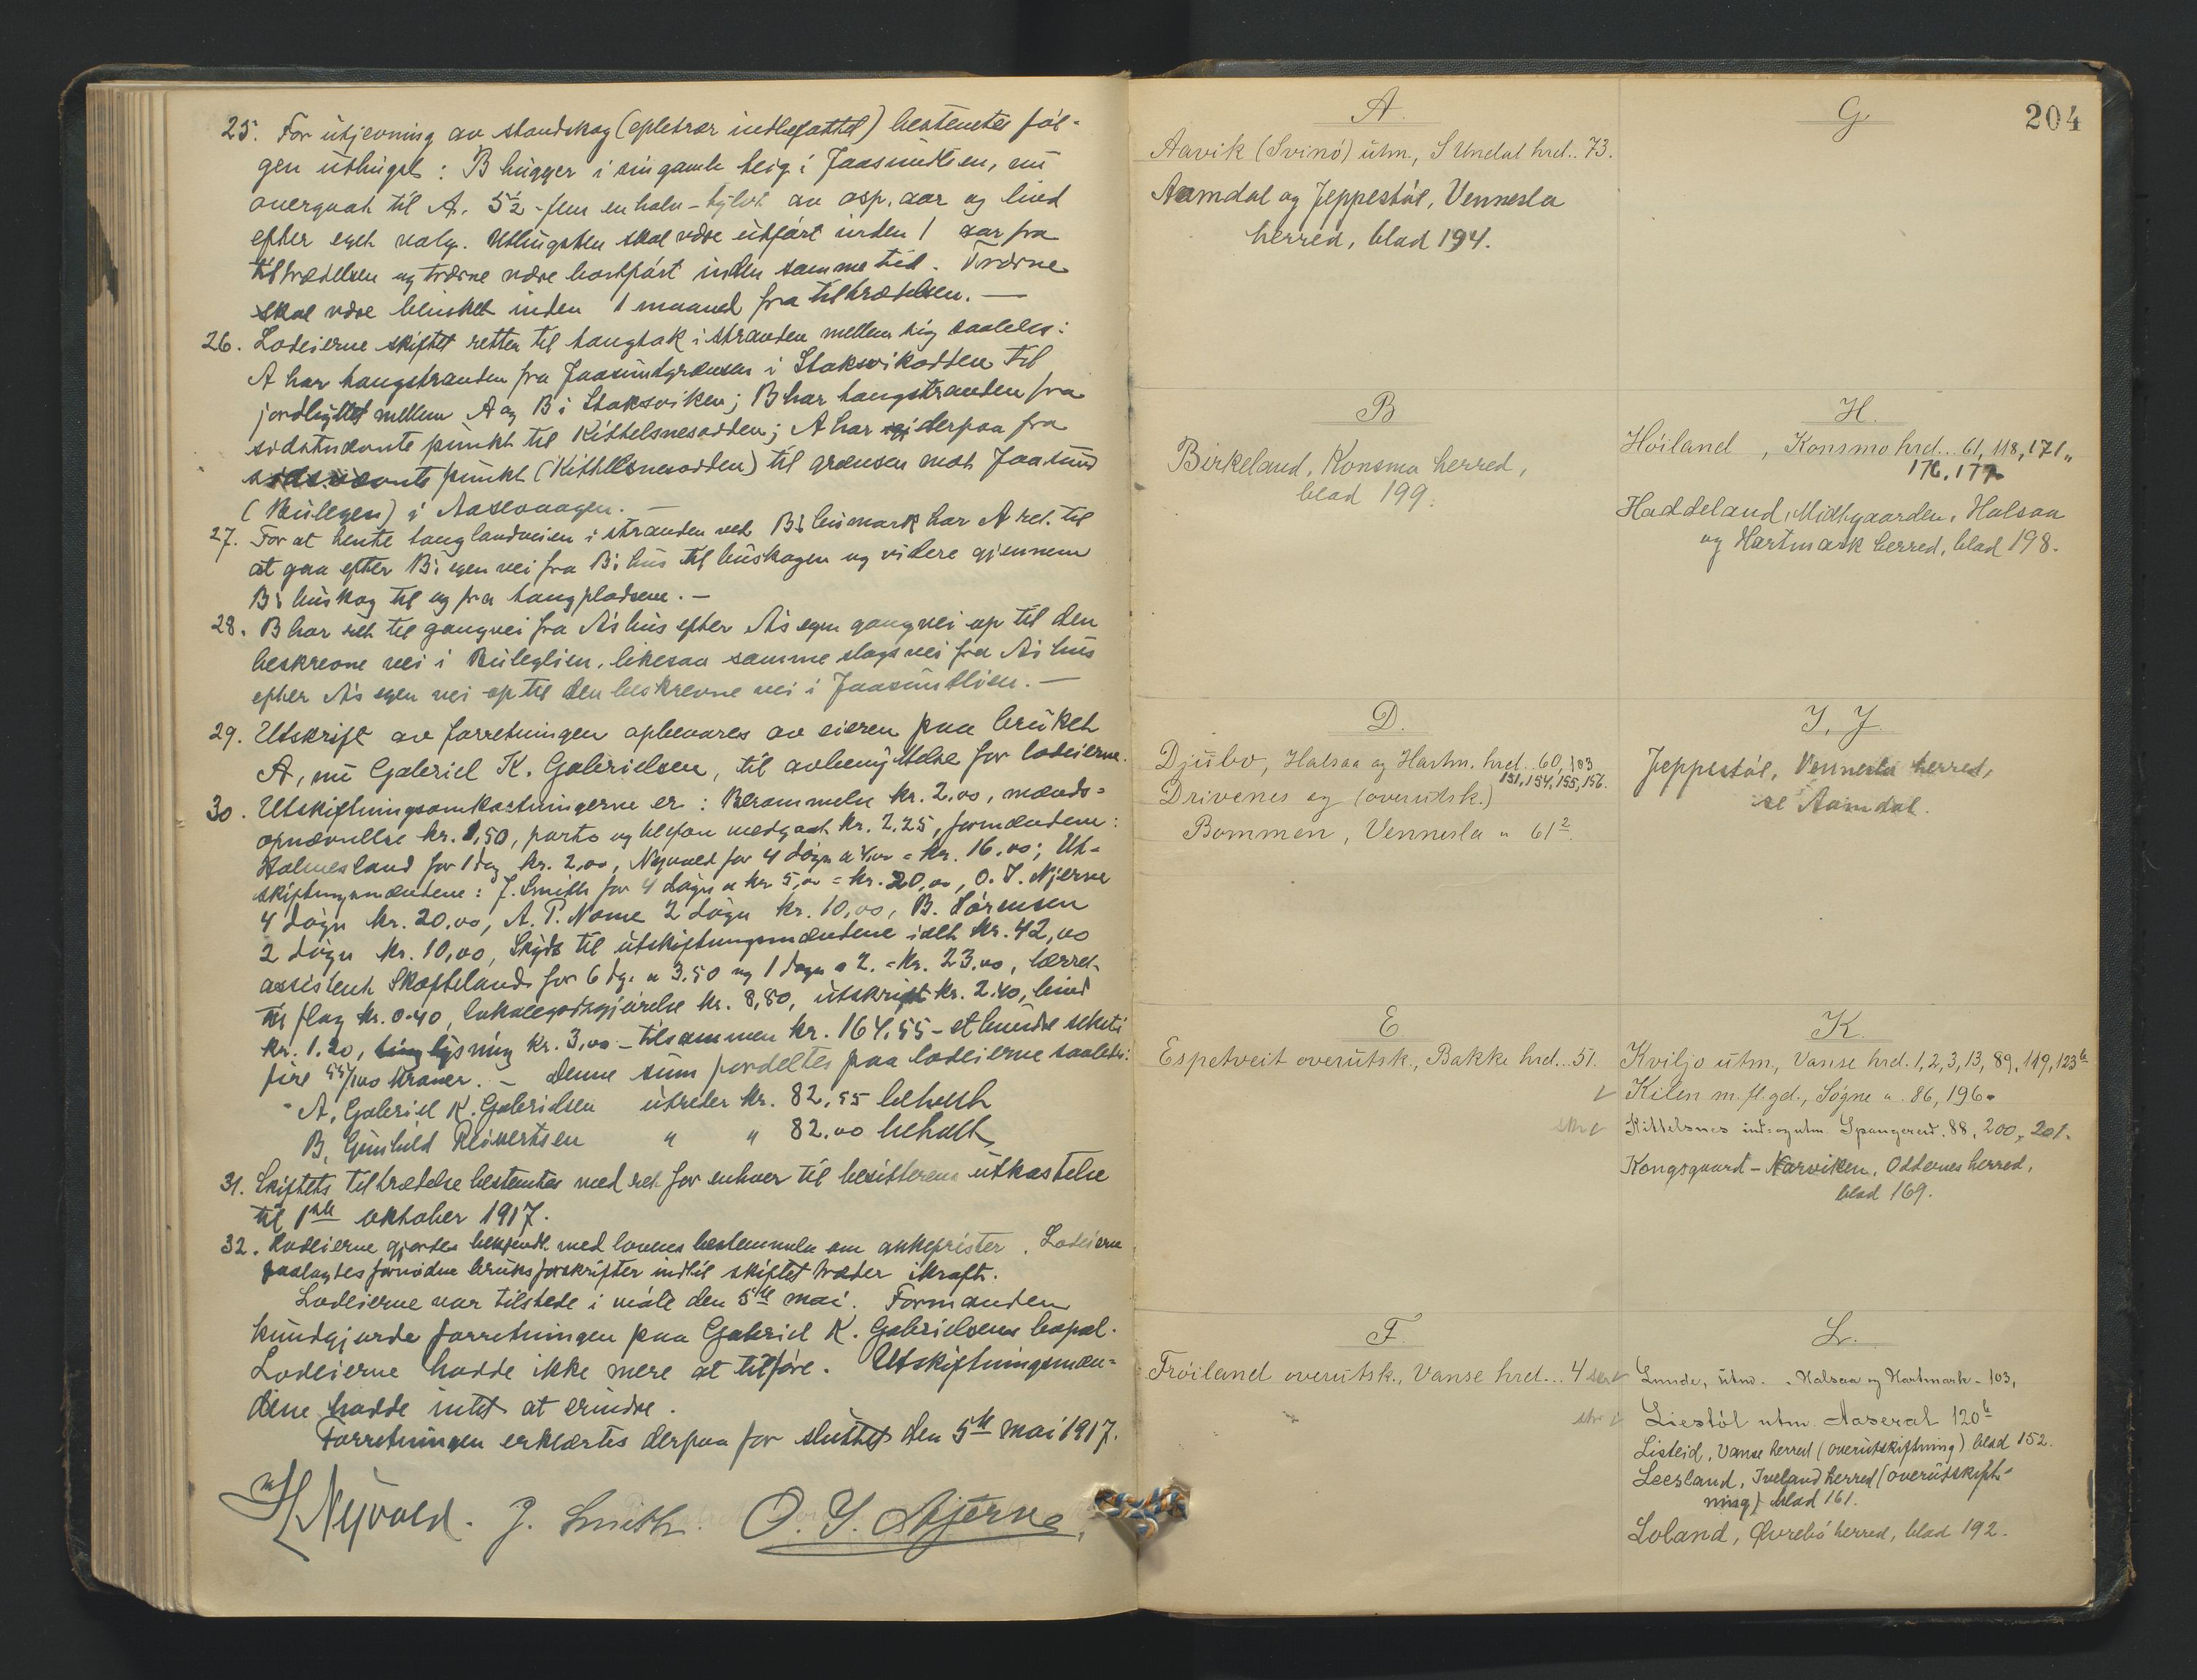 25. For utjevning av standskog (epletrær indbefattet) bestemtes føl-
gen uthugst: B hugger i sin gamle teig i Jaasundlien, nu
overgaat til A. 5½ - fem en halv - tylvt av osp, aar og lind
efter eget valg. Uthugsten skal være utført inden 1 aar fra
tiltrædelsen og trærne være bortført inden samme tid. Trærne
skal være blinket inden 1 maaned fra tiltrædelsen. —
26. Lodeierne skiftet retten til tangtak i stranden mellem sig saaledes:
A har tangstranden fra Jaasundgrænsen i Staksvikodden til
jordbyttet mellem A og B i Staksviken; B har tangstranden fra
sidstnævnte punkt til Kittelsnesodden; A har derpaa fra
sidstnævnte punkt (Kittelsnesodden) til grænsen mot Jaasund
(Bulegen) i Aasevaagen. —
27. For at hente tang landveien i stranden ved B's heimark har A ret til
at gaa efter B's egen vei fra B's hus til huskogen og videre gjennem
B's huskog til og fra tangpladsene. —
28. B har ret til gangvei fra A's hus efter A's egen gangvei op til den
beskrevne vei i Buleglien, likesaa samme slags vei fra A's hus
efter A's egen vei op til den beskrevne vei i Jaasundlien. —
29. Utskrift av forretningen opbevares av eieren paa bruket
A, nu Gabriel K. Gabrielsen, til avbenyttelse for lodeierne.
30. Utskiftningsomkostningerne er: Berammelse kr. 2,00, mænds-
opnævnelse kr. 1,50, porto og telefon medgaat kr. 2.25, formændene:
Holmesland for 1 dag kr. 2,00, Nyvold for 4 døgn a 4,00 = kr. 16.00; Ut-
skiftningsmændene: J. Smith for 4 døgn a kr 5,00 = kr. 20,00, O. T. Njerve
4 døgn kr. 20.00, A. P. Nome 2 døgn kr. 10,00, B. Sørensen
2 døgn kr. 10,00, Skyds til utskiftningsmændene ialt kr. 42,00
assistent Skofteland for 6 dg. a 3.50 og 1 døgn a 2. = kr. 23.00, lærret
til flag kr. 0.40, lokalegodtgjørelse kr. 8,80, utskrift kr. 2.40, bind
kr. 1.20, tinglysning kr. 3,00 - tilsammen kr. 164,55 - et hundre seksti
fire 55/100 kroner. - Denne sum fordeltes paa lodeierne saaledes:
A, Gabriel K. Gabrielsen utreder kr. 82,55 behult
B, Gunhild Reiertsen " " 82.00 behalt
31. Skiftets tiltrædelse bestemtes med ret for enhver til besitterens utkastelse
til 1ste oktober 1917.
32. Lodeierne gjordes bekjendt med lovens bestemmelse om ankefrister. Lodeierne
paalagtes fornødne bruksforskrifter indtil skiftet træder ikraft.
Lodeierne var tilstede i møte den 5te mai. Formanden
kundgjorde forretningen paa Gabriel K. Gabrielsens bopæl.
Lodeierne hadde ikke mere at tilføre. Utskiftningsmæn-
dene hadde intet at erindre.
Forretningen erklærtes derpaa for sluttet den 5te mai 1917.
Nyvold. J. Smith. O. T. Njerve,
204
A.
Aavik (Svinø) utm., S Undal hrd.. 73.
Aamdal og Jeppestøl, Vennesla
herred, blad 194.
B
Birkeland, Konsmo herred,
blad 199.
D.
Djubo, Halsaa og Hartm. hrd. 60, 103
151, 154, 155, 156.
Drivenes og (overutsk.)
Bommen, Vennesla " 61²
E
Espetveit overutsk., Bakke hrd... 51.
F.
Frøiland overutsk., Vanse hrd... 4
G.
H.
Høiland , Konsmo hrd.. 61, 118, 171,
176, 177
Haddeland, Midtgaarden, Halsaa
og Hartmark herred, blad 198.
I, J
Jeppestøl, Vennesla herred,
se Aamdal.
K.
Kviljo utm., Vanse hrd. 1, 2, 3, 13, 89, 119, 123b
Kilen m. fl. gd., Søgne " 86, 196.
Kittelsnes ind= og utm. Spangereid. 88, 200, 201.
Kongsgaard - Narviken, Oddernes herred,
blad 169.
L.
Lunde, utm. . Halsaa og Hartmark - 103,
Liestøl utm. Aaseral 120b
Listeid, Vanse herred (overutskiftning) blad 152.
Leesland, Iveland herred (overutskift-
ning) blad 161.
Loland, Øvrebø herred, blad 192.